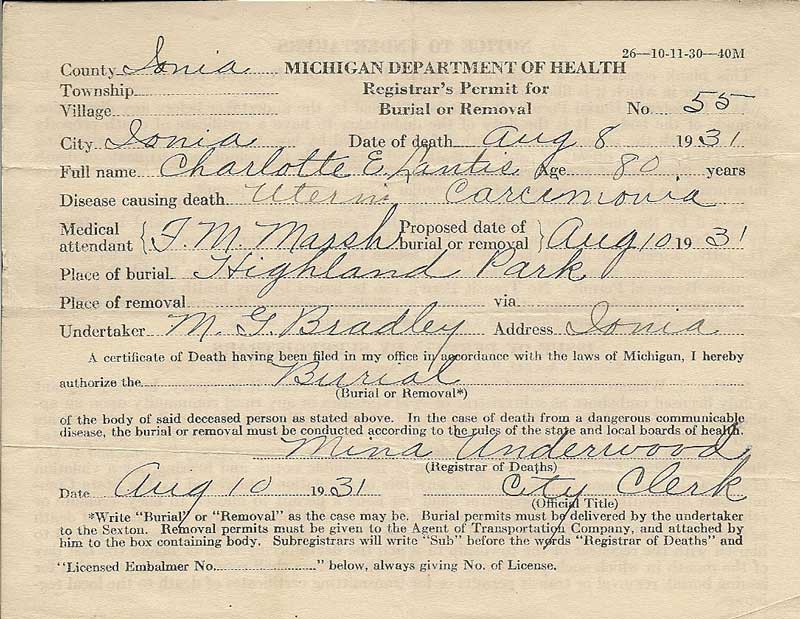 26—10-11-30—40M
County Ionia MICHIGAN DEPARTMENT OF HEALTH
Township Registrar's Permit for
Village Burial or Removal No. 55
City Ionia Date of death Aug 8 1931
Full name Charlotte E. Lantis Age 80 years
Disease causing death Uterin Carcimonia
Medical attendant { F. M. Marsh Proposed date of burial or removal } Aug 10 1931
Place of burial Highland Park
Place of removal via
Undertaker M. G. Bradley Address Ionia
A certificate of Death having been filed in my office in accordance with the laws of Michigan, I hereby
authorize the Burial
(Burial or Removal*)
of the body of said deceased person as stated above. In the case of death from a dangerous communicable
disease, the burial or removal must be conducted according to the rules of the state and local boards of health.
Mina Underwood
(Registrar of Deaths)
Date Aug 10 1931 City Clerk
(Official Title)
*Write "Burial" or "Removal" as the case may be. Burial permits must be delivered by the undertaker
to the Sexton. Removal permits must be given to the Agent of Transportation Company, and attached by
him to the box containing body. Subregistrars will write "Sub" before the words "Registrar of Deaths" and
"Licensed Embalmer No. " below, always giving No. of License.